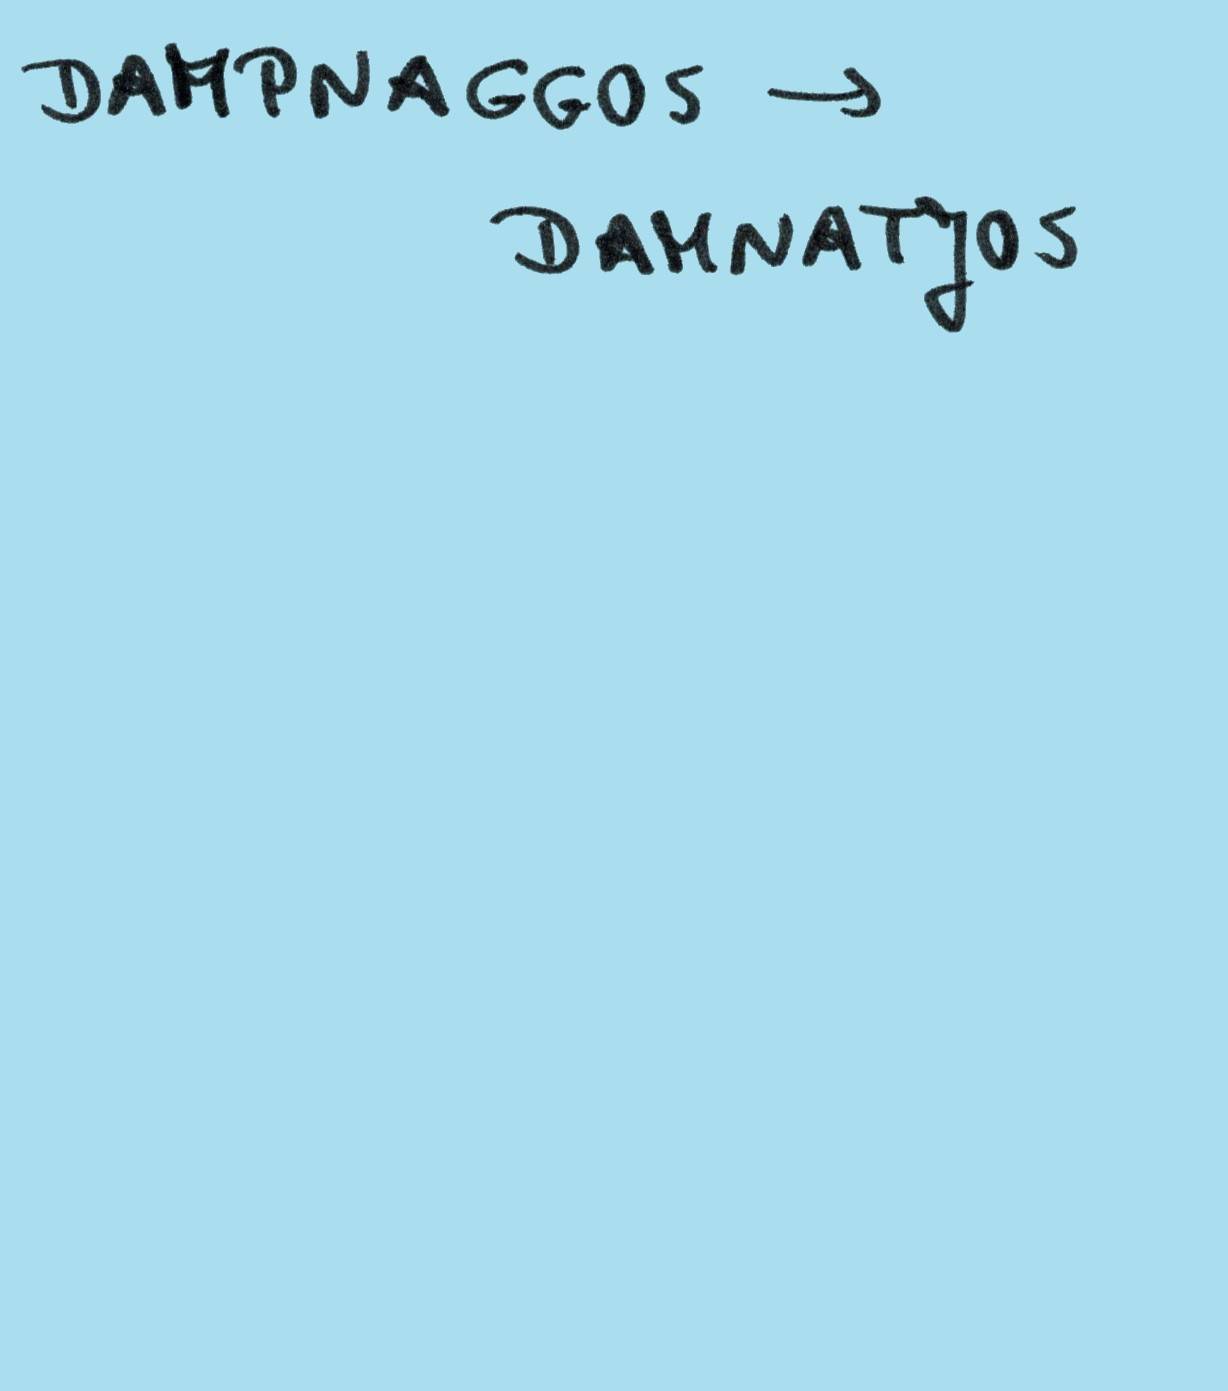 DAMPNAGGOS →
DAMNATJOS